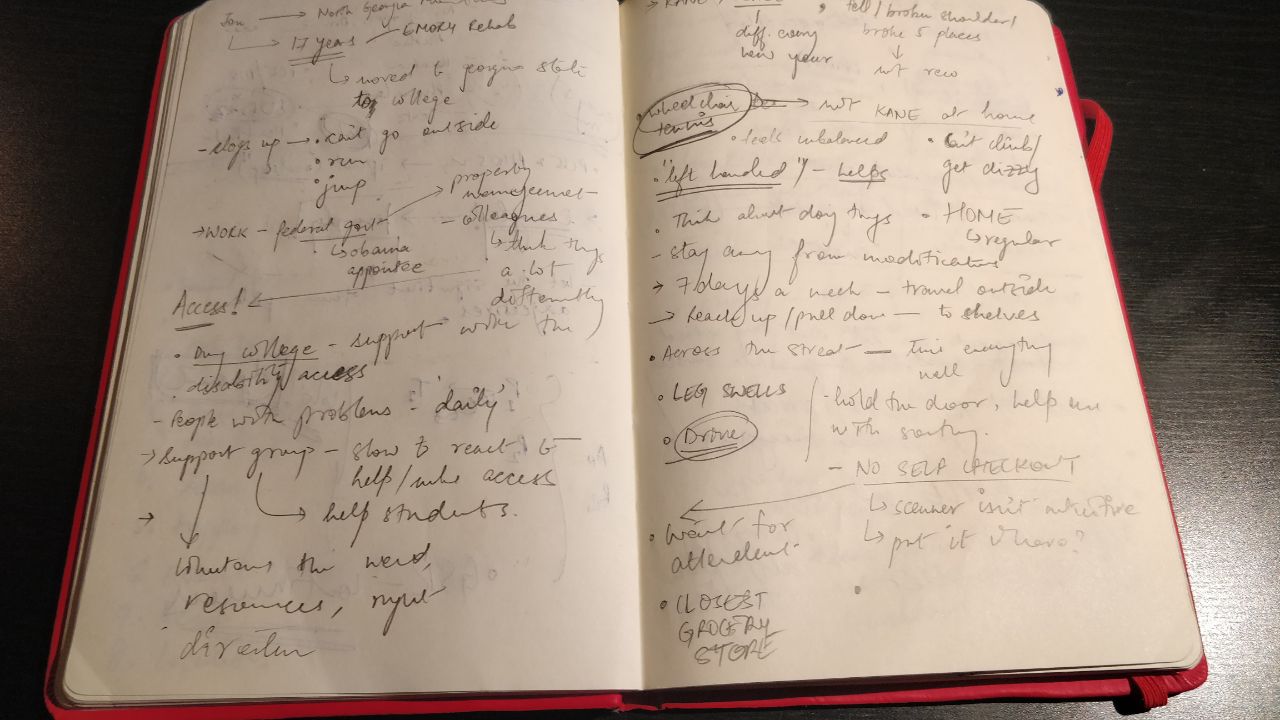 Jon → North Georgia
→ 17 years — EMORY Rehab
↳ moved to georgia state
college
- dogs up → • can't go outside
• run
• jump
property
management
→ WORK - federal govt
- colleagues
↳ obama
appointee
↳ think things
a lot
differently
Access!
• college - support with the
disability access
- People with problems - 'daily'
→ support group - slow to react to
help/make access
→ help students.
→
the word,
resources, right
direction
→ KANE /
• fell/broken shoulder/
broke 5 places
diff. every
new year
↓
not
• wheelchair
tennis
→ not KANE at home
• feels unbalanced
• can't climb/
get dizzy
• "left handed" - helps
• Think about doing things
• HOME
↳ regular
- stay away from modifications
→ 7 days a week - travel outside
→ Reach up/pull down - to shelves
• Across the street — time everything
well
• LEG SWELLS
- hold the door, help me
with
• Drone
- NO SELF CHECKOUT
↳ scanner isn't intuitive
↳ put it where?
• Wait for
attendent
• CLOSEST
GROCERY
STORE